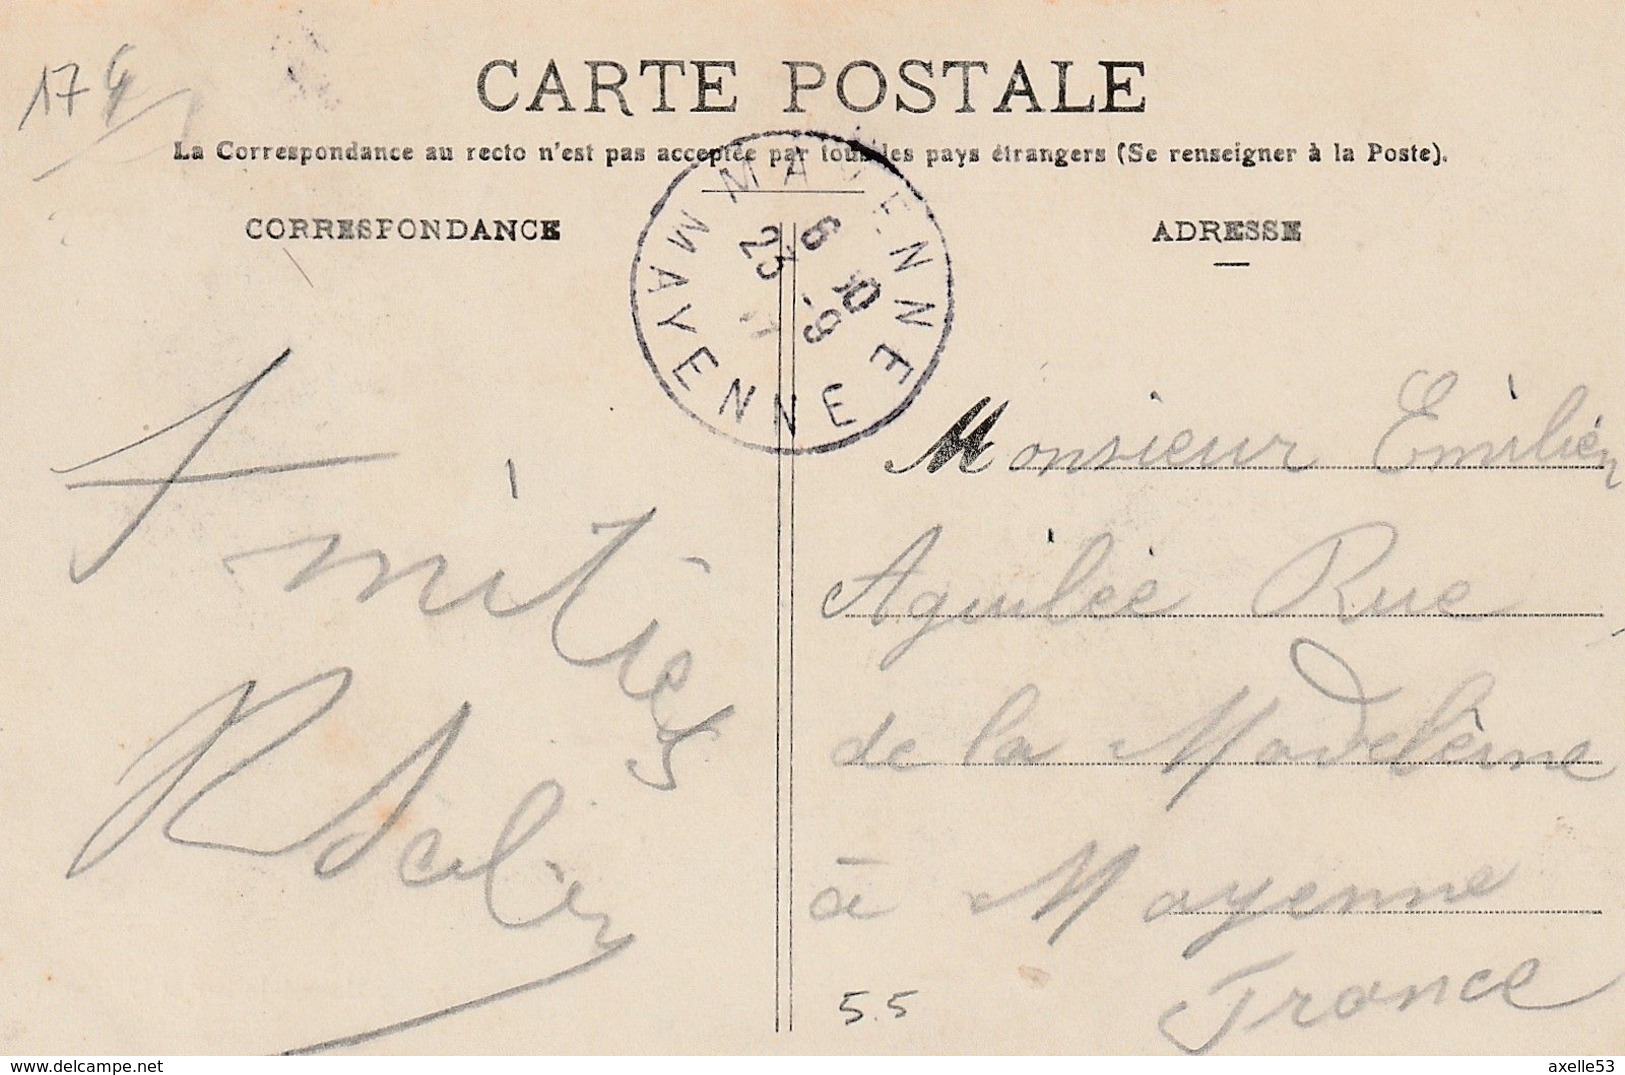 174
CARTE POSTALE
La Correspondance au recto n'est pas acceptée par tous les pays étrangers (Se renseigner à la Poste).
CORRESPONDANCE
ADRESSE
MAYENNE
6 30
23 -9
MAYENNE
Amitiés
Monsieur Emilien
Aguilée Rue
de la Madeleine
à Mayenne
France
5.5
www.delcampe.net
axelle53